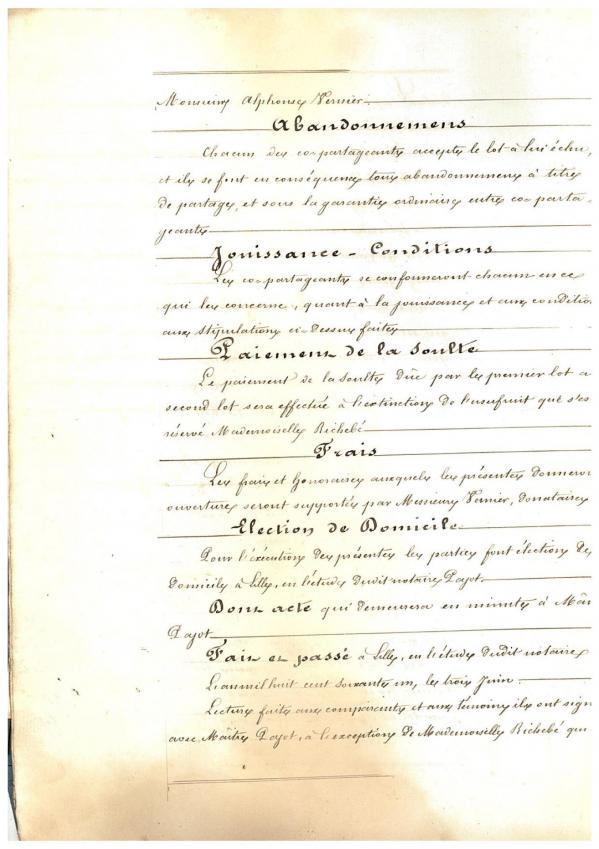 Monsieur Alphonse Vernier
Abandonnemens
Chacun des co-partageants accepte le lot à lui échu,
et ils se font en conséquence tous abandonnemens à titre
de partage, et sous la garantie ordinaire entre co-parta-
geants
Jouissance - Conditions
Les co-partageants se conformeront chacun en ce
qui les concerne, quant à la jouissance et aux conditio
aux stipulations ci-dessus faites
Paiement de la soulte
Le paiement de la soulte dûe par le premier lot a
second lot sera effectué à l'extinction de l'usufruit que s'es
réservé Mademoiselle Richebé
Frais
Les frais et honoraires auxquels les présentes donneron
ouverture seront supportés par Messieurs Vernier, donataires
Election de Domicile
Pour l'éxécution des présentes les parties font élection de
domicile à Lille, en l'étude dudit notaire Pajot.
Dont acte qui demeurera en minute à Maî
Pajot
Fait et passé à Lille, en l'étude dudit notaire
L'an mil huit cent soixante un, le trois Juin.
Lecture faite aux comparents et aux témoins ils ont sign
avec Maître Pajot, à l'exception de Mademoiselle Richebé qui